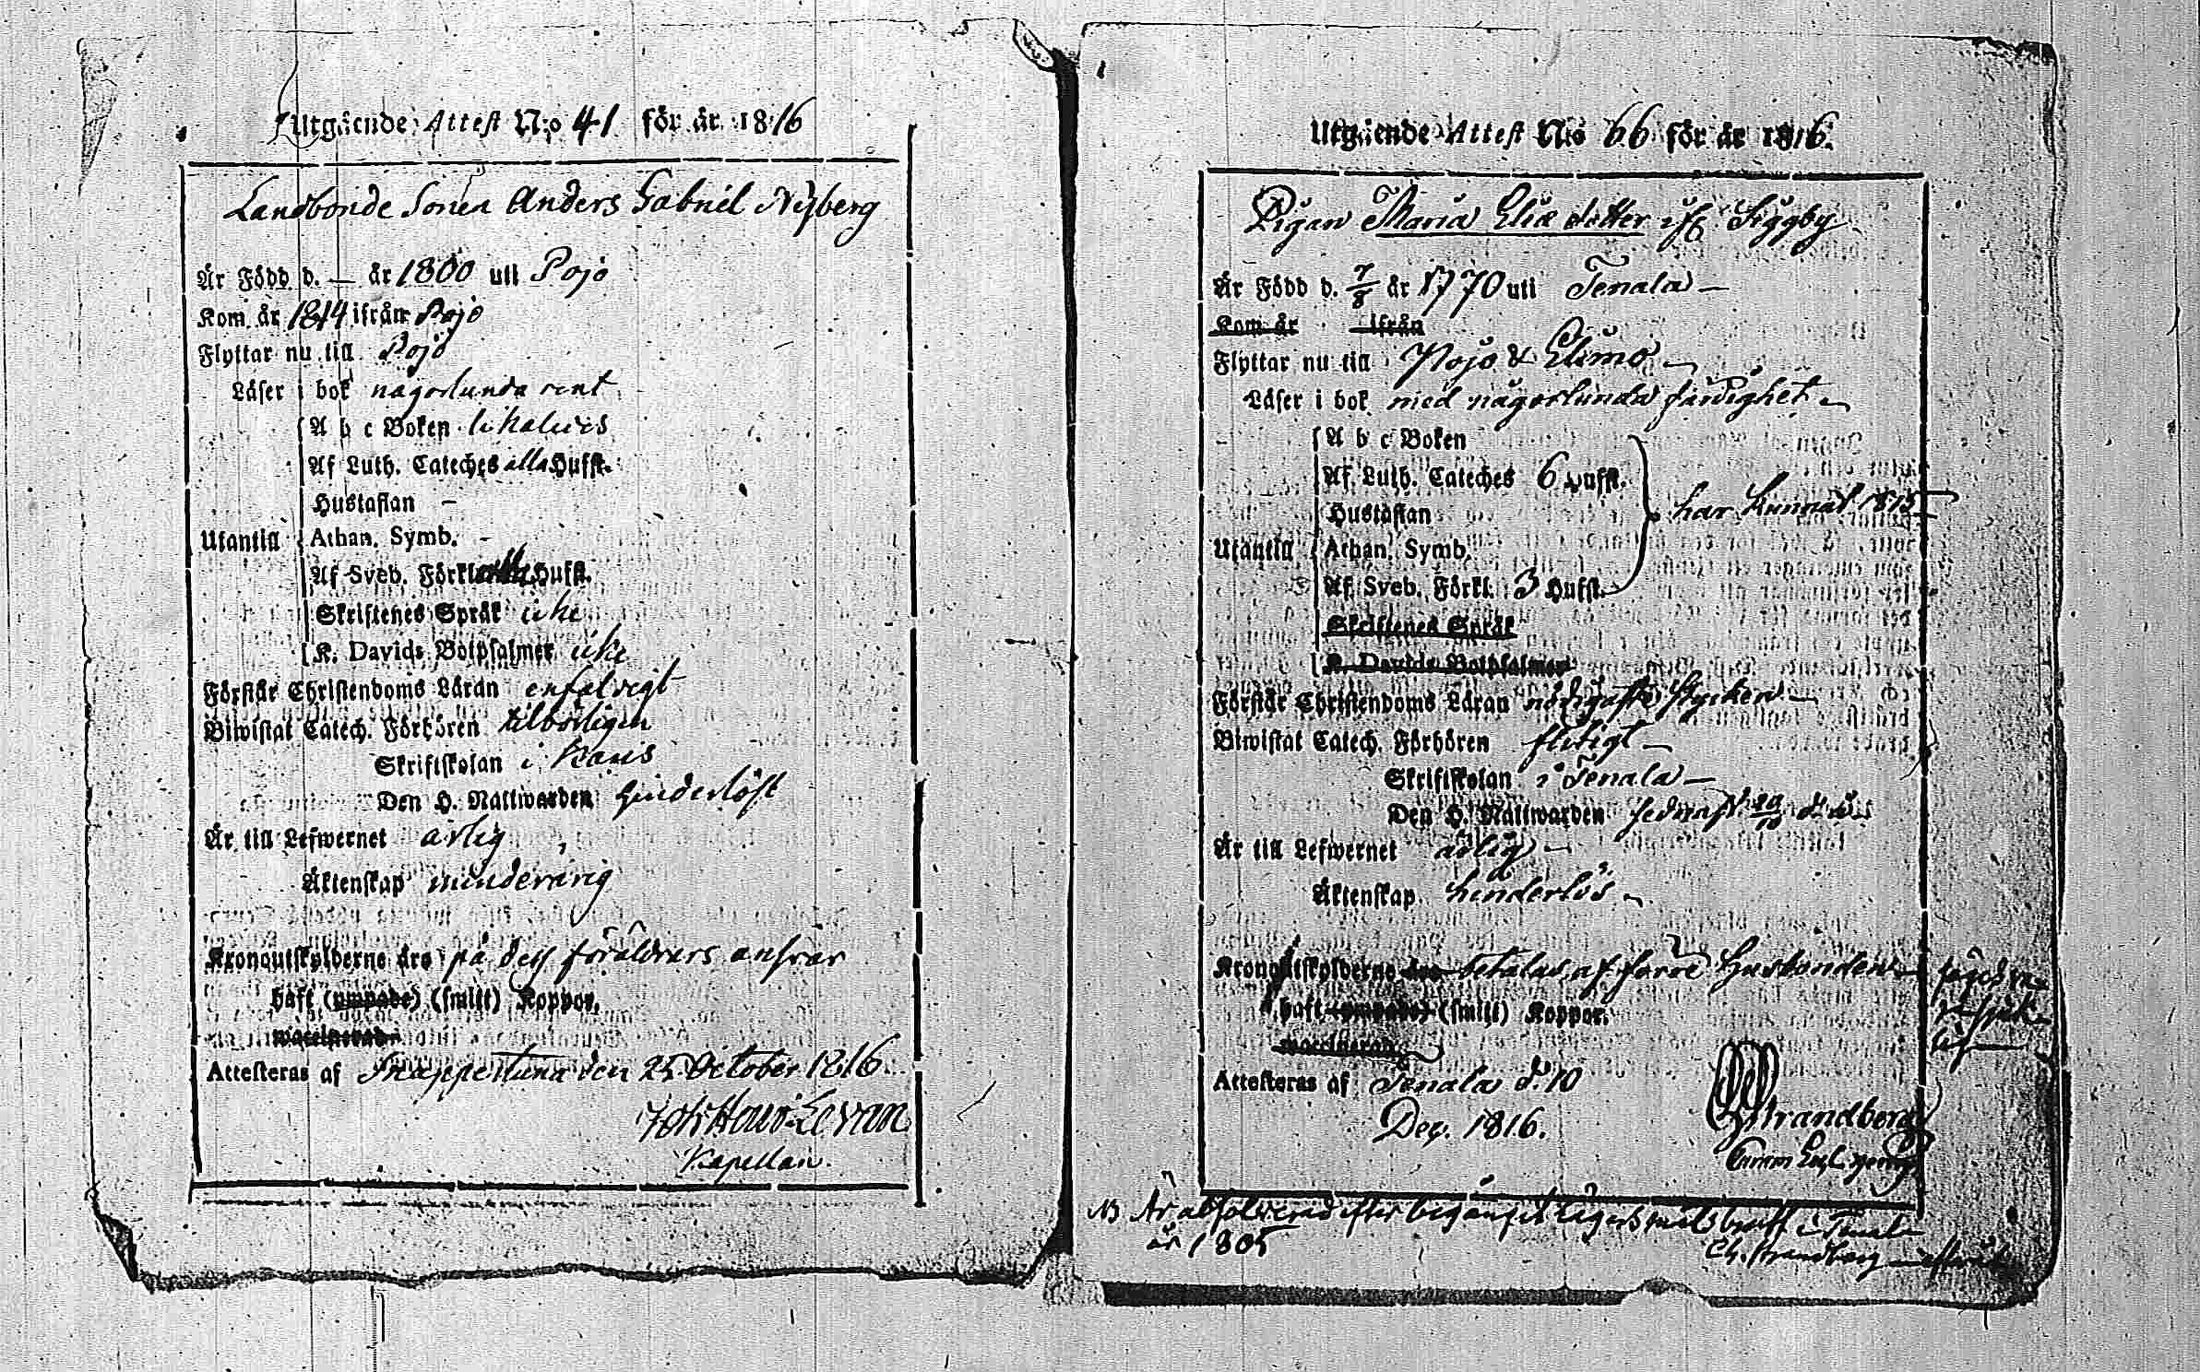 Utgående Attest N:o 41 för år 1816
Landbonde Sonen Anders Gabriel Nyberg
Är Född d. — år 1800 uti Pojo
Kom år 1814 ifrån Pojo
Flyttar nu till Pojo
Läser i bok någorlunda rent
A b c Boken likaledes
Af Luth. Cateches alla Hufst.
Hustaflan –
Utantill Athan. Symb. –
Af Sveb. Förkl. alla Hufst.
Skriftenes Språk icke
K. Davids Botpsalmer icke
Förstår Christendoms Läran enfaldigt
Biwistat Catech. Förhören tilbörligen
Skriftskolan i Karis
Den H. Nattwarden hinderlöst
Är till Lefwernet ärlig
Äktenskap minderårig
Kronoutskylderne äro på dess föräldrars ansvar
haft (ympade) (smitt) Koppor.
waccinerad
Attesteras af Snappertuna den 25 October 1816
Joh Henr Levan
Kapellan.
Utgående Attest N:o 66 för år 1816.
Pigan Maria Eliæ dotter ifr. Siggby
Är Född d. 7/8 år 1770 uti Tenala –
Kom år ifrån
Flyttar nu till Pojo & Elimo –
Läser i bok med någorlunda färdighet –
A b c Boken
Af Luth. Cateches 6 Hufst.
Hustaflan har kunnat 1815
Utantill Athan. Symb.
Af Sveb. Förkl. 3 Hufst.
Skriftenes Språk
K. Davids Botpsalmer
Förstår Christendoms Läran nödigaste stycken –
Biwistat Catech. Förhören flitigt –
Skriftskolan i Tenala –
Den H. Nattwarden sednast d. å.
Är till Lefwernet ärlig –
Äktenskap hinderlös –
Kronoutskylderne äro betalas af förre Husbonden
haft (ympade) (smitt) Koppor.
waccinerad
Attesteras af Tenala d. 10
Dec. 1816.
Strandberg
NB Är absolverad efter begånget Lägersmåls brott i Tenala
år 1805
Ch. Strandberg